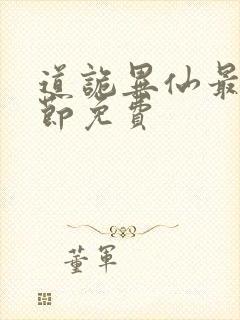 道詭異仙最
節免費
董軍